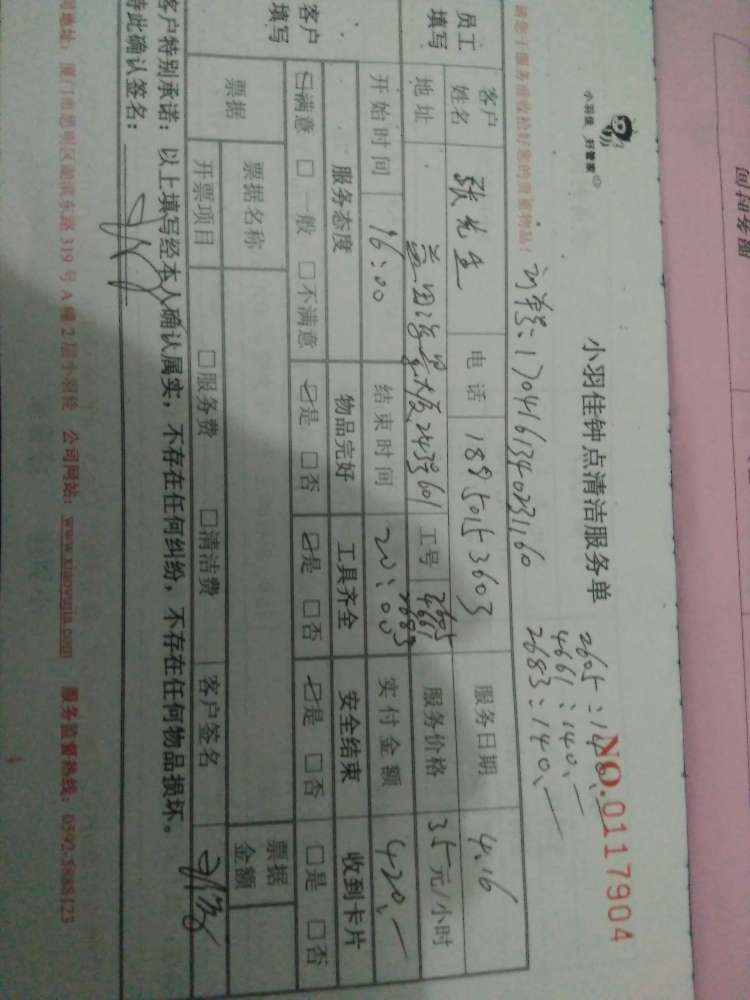 小羽佳 好管家
小羽佳钟点清洁服务单
NO.0117904
2605:140.-
4661:140.-
2683:140.-
订单号:1704161340231160
请您于服务前收拾好您的贵重物品!
员工填写
客户姓名 张先生 电话 18950153603 服务日期 4.16
地址 243号601 工号 2605 4661 2683 服务价格 35元/小时
开始时间 16:00 结束时间 20:00 实付金额 420.-
客户填写
服务态度 物品完好 工具齐全 安全结束 收到卡片
☑满意 □一般 □不满意 ☑是 □否 ☑是 □否 ☑是 □否 □是 □否
票据 票据名称 票据金额
开票项目 □服务费 □清洁费 客户签名
客户特别承诺:以上填写经本人确认属实,不存在任何纠纷,不存在任何物品损坏。
特此确认签名:
司地址:厦门市思明区湖滨东路319号A幢2层小羽佳 公司网站:www.xiaoyujia.com 服务监督热线:0592-5888123